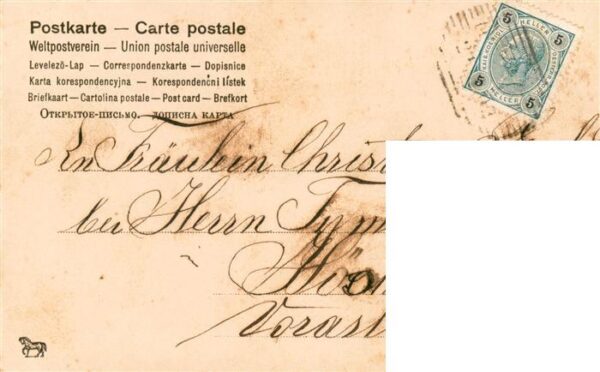 Postkarte — Carte postale
Weltpostverein — Union postale universelle
Levelező-Lap — Correrpondenzkarte — Dopisnice
Karta korespondencyjna — Korespondenční lístek
Briefkaart — Cartolina postale — Post card — Brefkort
Открытое-письмо. дописна карта
5 HELLER 5
5 HELLER 5
An Fräulein Christ
bei Herrn